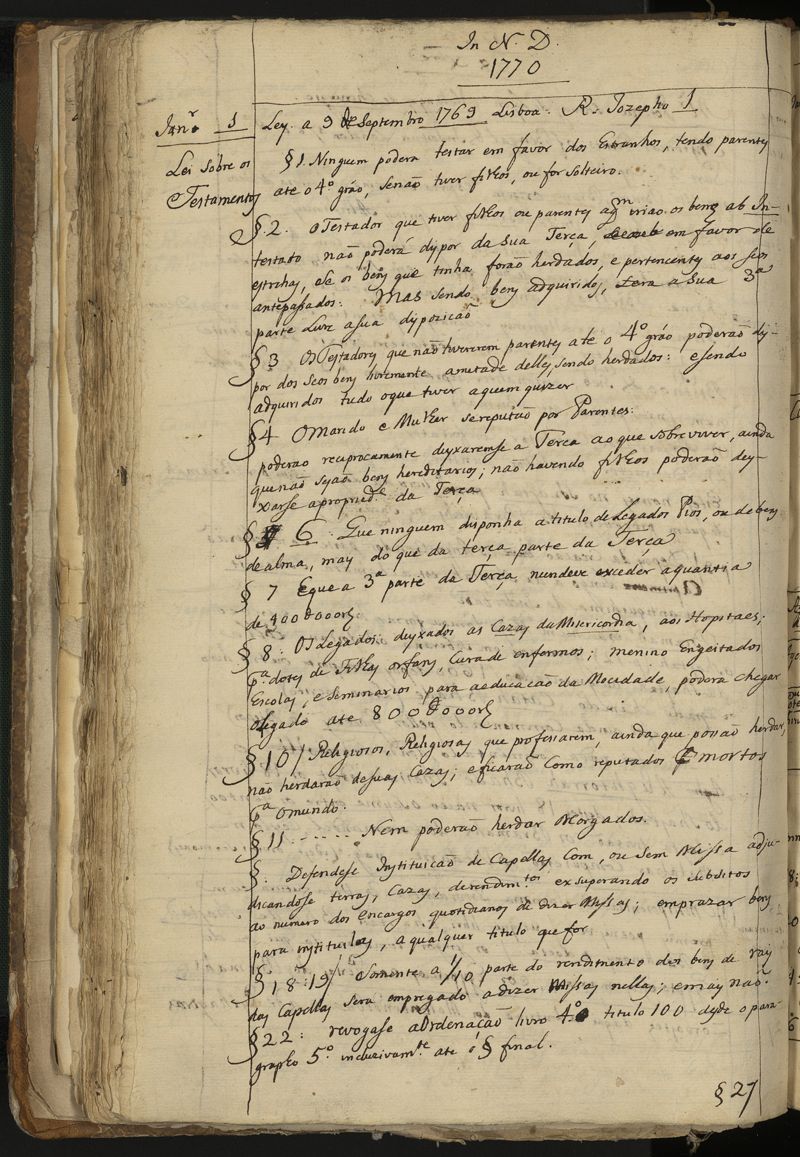 In N. D.
1770
Janr.º 1
Lei sobre os
Testamentos
Ley a 9 de Septembro 1769 Lisboa. R. Jozepho I
§ 1. Ninguem podera testar em favor dos Estranhos, tendo parentes
ate o 4º gráo, senão tiver filhos, ou for solteiro.
§ 2. O Testador que tiver filhos ou parentes aqm irião os bens ab In-
testado não poderá dypor da sua Terça, em favor de
estrahos, se os bens que tinha forão herdados, e pertencentes aos seos
antepassados: Mas sendo bens adquiridos, tera a sua 3ª
parte Livre a sua dypozicaõ
§ 3 Os Testadores que não tivererem parentes ate o 4º gráo poderaõ dy-
por dos seos bens livremente ametade delles sendo herdados: e sendo
adquiridos tudo o que tiver a quem quizer
§ 4 O Marido e Mulher se reputão por Parentes:
poderao reciprocamente deyxarense a Terca ao que sobreviver, ainda
que não sejaõ bens hereditarios; não havendo filhos poderaõ dey-
xarse a propried.e da Terça
§ 6. Que ninguem disponha a titulo de Legados Pios, ou de bens
de alma, mays do que da terça parte da Terça
§ 7 E que a 3ª parte da Terça, nundeve exceder a quantia
de 400$000rs
§ 8: Os Legados deyxados as Cazas da Misericordia, aos Hospitaes;
pª dotes de filhas orfans, Cura de enfermos; menino Engeitados
Escolas, e Seminarios para a educacão da Mocidade, podera chegar
o legado ate 800$000rs
§ 10/ Religiosos, Religiosas que professarem, ainda que possão herdar,
não herdarão de suas Cazas; e ficarão como reputados mortos
pª o mundo.
§ 11 ...... Nem poderão herdar Morgados.
§. Defendese Instituicão de Capellas com, ou sem Missa adju-
dicandose terras, Cazas, de rendim.tos exsuperando os
ao numero dos encargos quotidianos de dizer Missas; emprazar bens
para instituilos, a qualquer titulo que for
§ 18: 19/ Somente a 1/10 parte do rendimento dos bens de rays
das Capellas sera empregado a dizer Missas nellas; e mays não.
§ 22: revogase a Ordenação livro 4º titulo 100 dysde o para-
grapho 5º incluzivam.te ate o § final.
§ 27